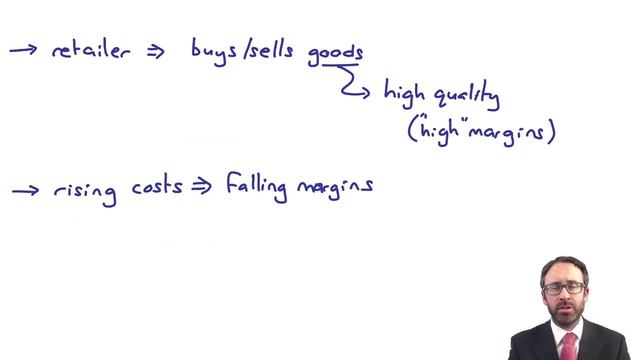 → retailer ⇒ buys/sells goods
↳ high quality
("high" margins)
→ rising costs ⇒ Falling margins